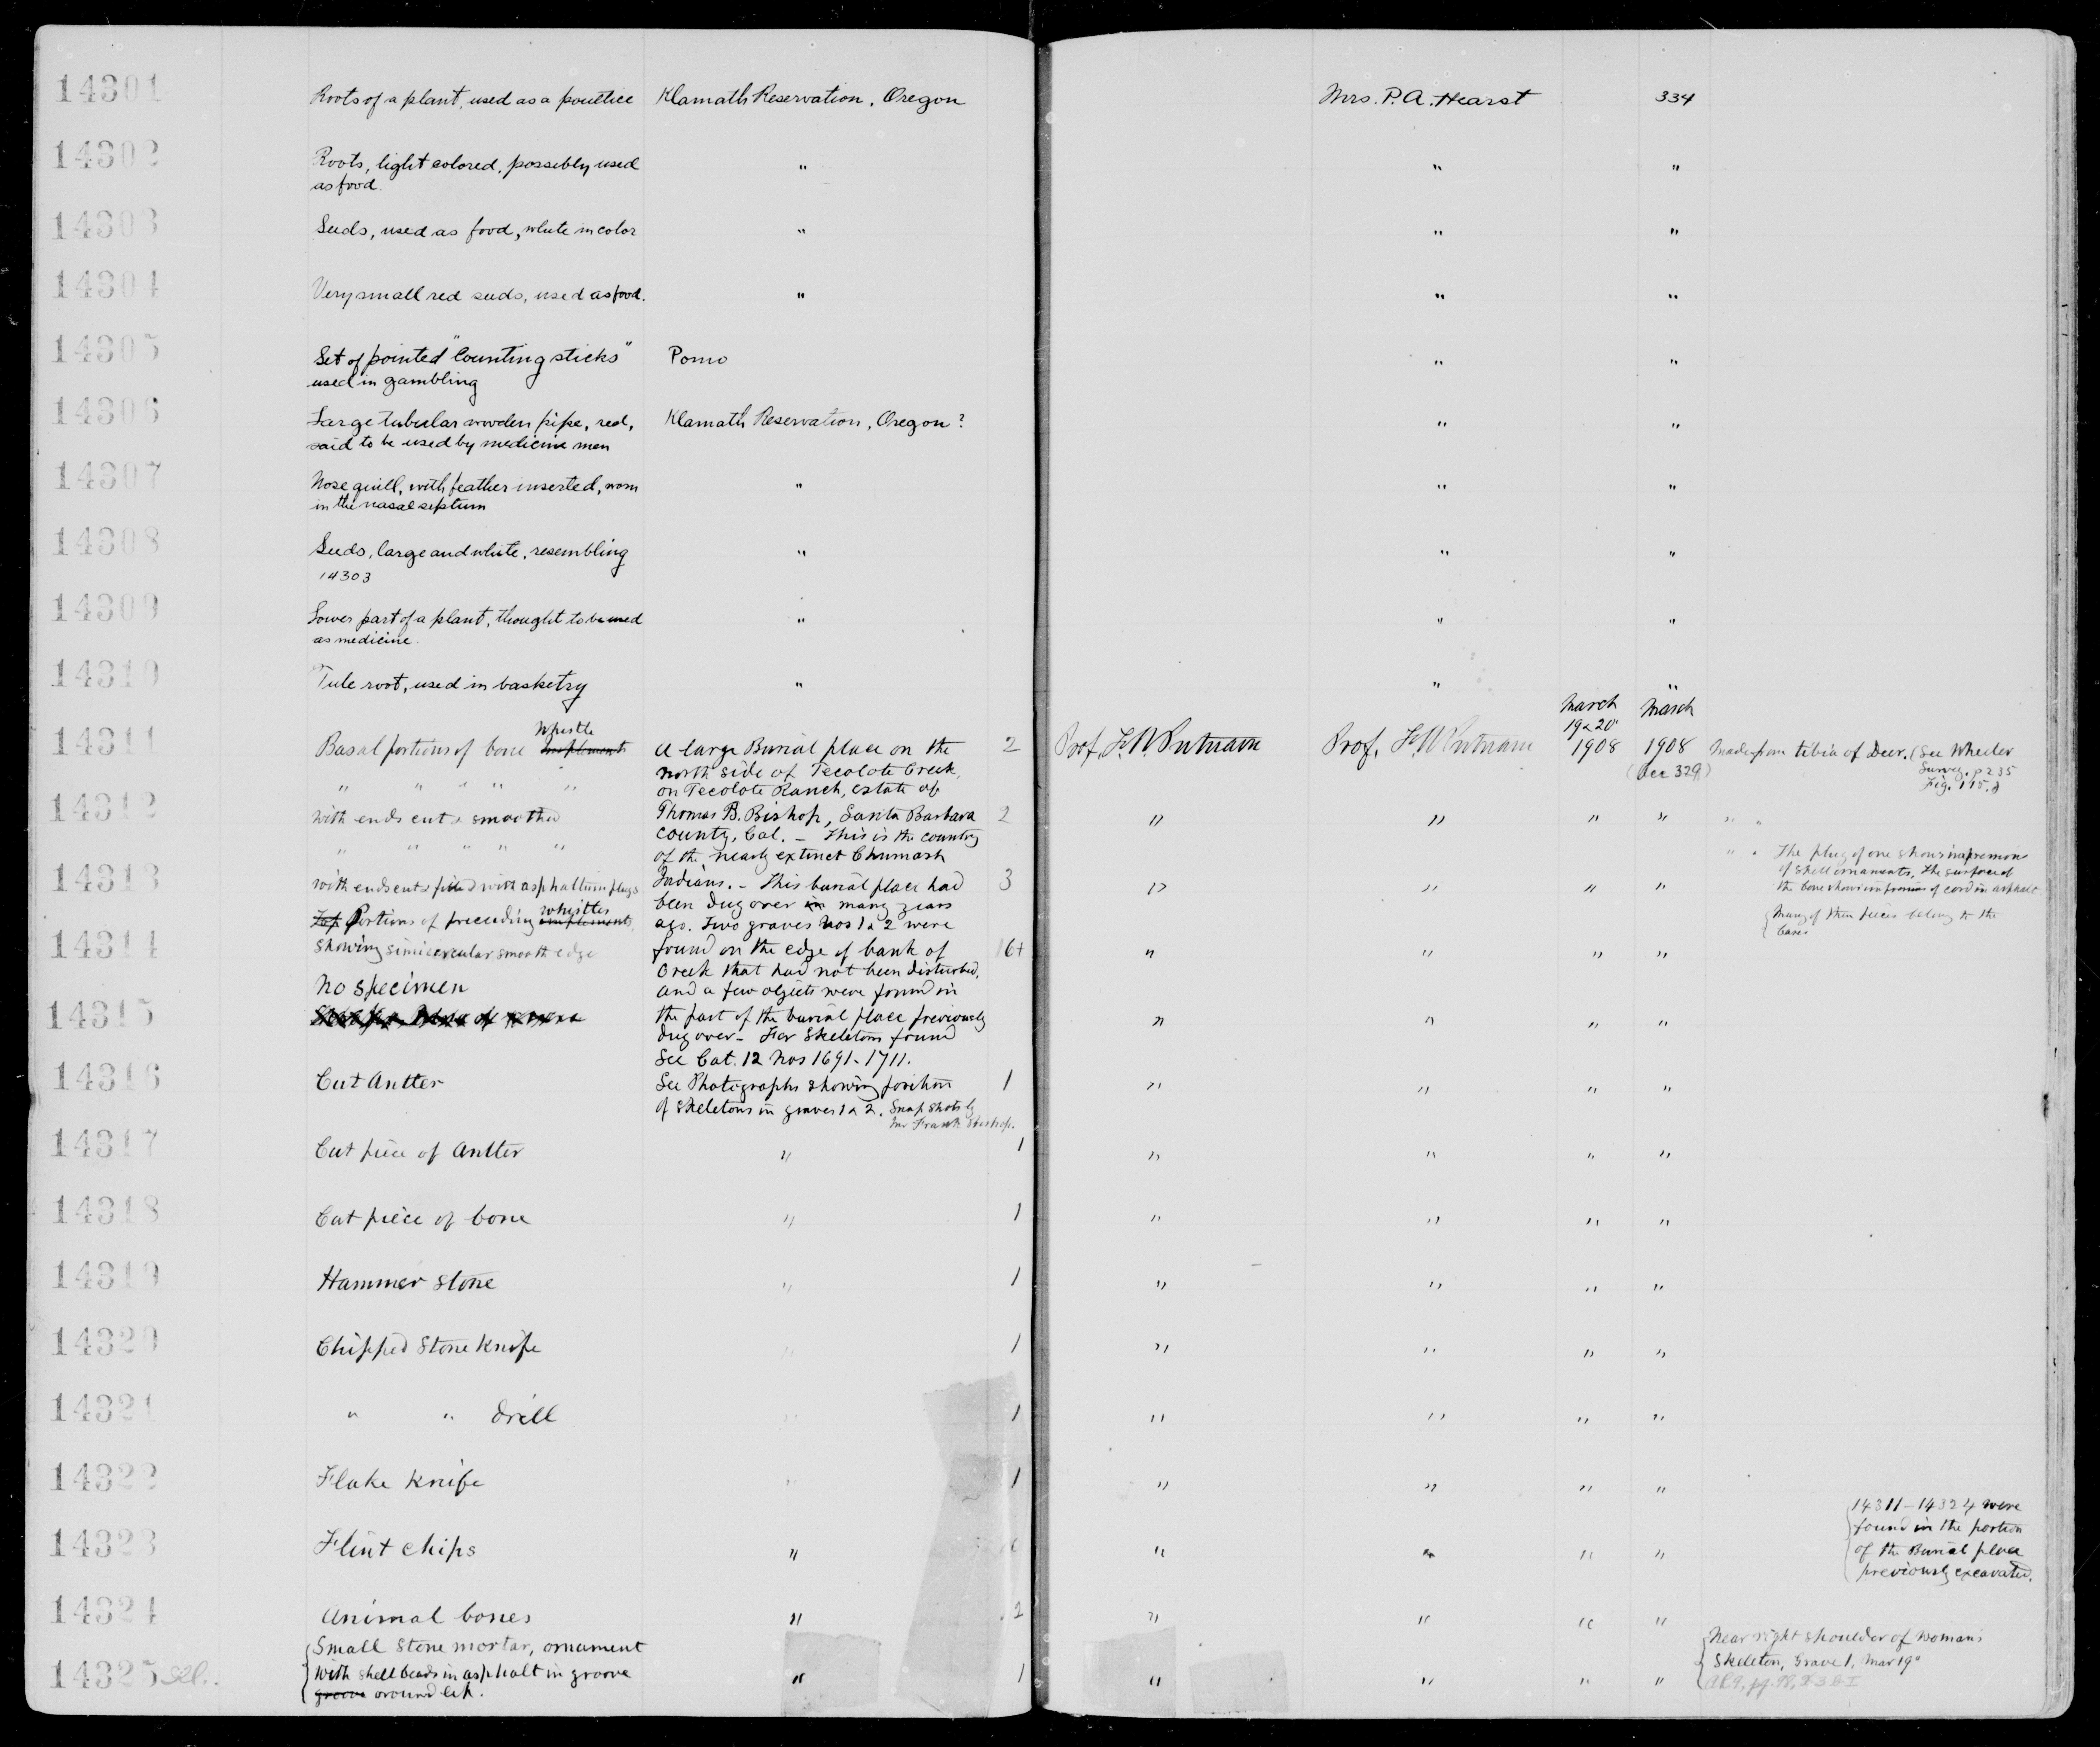 14301 Roots of a plant, used as a poultice Klamath Reservation, Oregon Mrs. P. A. Hearst 334
14302 Roots, light colored, possibly used " " "
as food.
14303 Seeds, used as food, white in color " " "
14304 Very small red seeds, used as food. " " "
14305 Set of pointed "counting sticks" Pomo " "
used in gambling
14306 Large tubular wooden pipe, red, Klamath Reservation, Oregon? " "
said to be used by medicine men
14307 Nose quill, with feather inserted, worn " " "
in the nasal septum
14308 Seeds, large and white, resembling " " "
14303
14309 Lower part of a plant, thought to be used " " "
as medicine.
14310 Tule root, used in basketry " " "
March
19 & 20
1908
March
1908
(Acc 329)
14311 Basal portions of bone whistle implements
2 Prof. F. W. Putnam Prof. F. W. Putnam
Made from tibia of Deer. (See Wheeler
Survey. p 235
Fig. 115.)
A large Burial place on the
north side of Tecolote Creek,
on Tecolote Ranch, estate of
Thomas B. Bishop, Santa Barbara
County, Cal. – This is the country
of the nearly extinct Chumash
Indians. – This burial place had
been dug over in many years
ago. Two graves Nos 1 & 2 were
found on the edge of bank of
Creek that had not been disturbed,
and a few objects were found in
the part of the burial place previously
dug over – For Skeletons found
See Cat. 12 Nos 1691-1711.
See Photographs showing position
of Skeletons in graves 1 & 2. Snap shots by
Mr Frank Bishop.
" " " " "
14312 with ends cut & smoothed 2 " " " " " "
" " " " "
14313 with ends cut & filled with asphaltum plugs 3 " " " "
" " The plug of one shows impression
of shell ornaments. The surface of
the bone shows impressions of cord in asphalt
14314 Top Portions of preceding whistles implements,
showing simicercular smooth edge 16+ " " " "
Many of these pieces belong to the
bases
No specimen
14315 " " " "
14316 Cut Antler 1 " " " "
14317 Cut piece of Antler " 1 " " " "
14318 Cut piece of bone " 1 " " " "
14319 Hammer stone " 1 " " " "
14320 Chipped Stone Knife " 1 " " " "
14321 " " drill " 1 " " " "
14322 Flake Knife " 1 " " " "
14323 Flint chips " " " " "
14311 – 14324 were
found in the portion
of the Burial place
previously excavated.
14324 Animal bones " 2 " " " "
14325 Small Stone mortar, ornament
with shell beads in asphalt in groove " 1 " " " "
groove around lip.
Near right shoulder of Woman's
Skeleton, Grave 1, Mar 19"